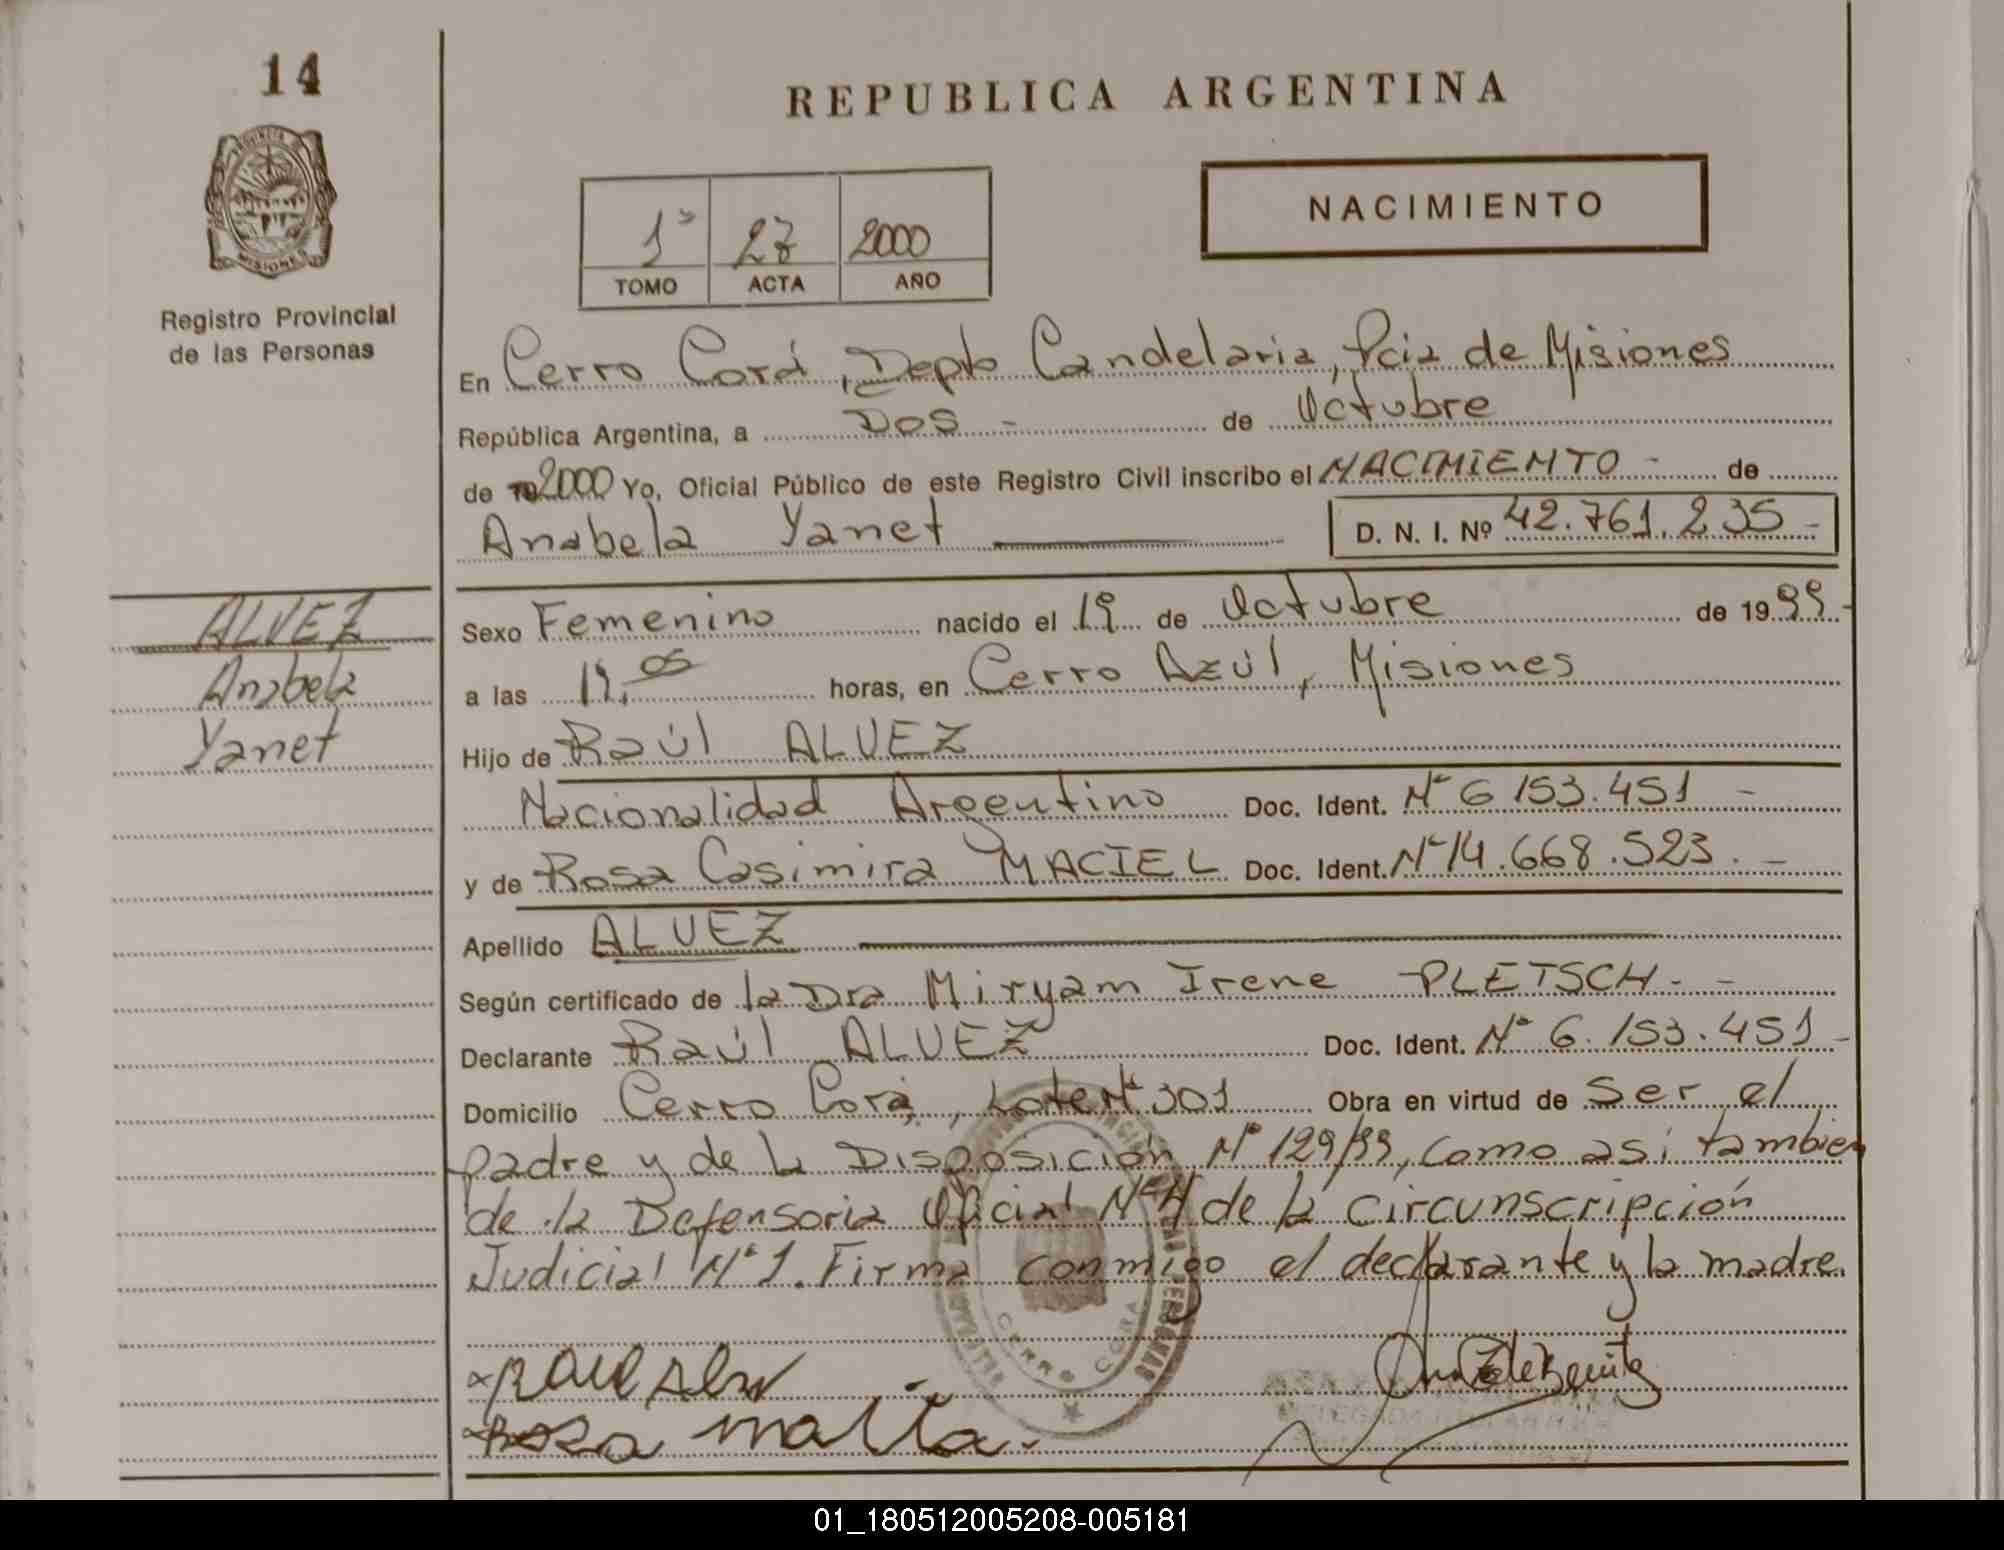 14
REPUBLICA ARGENTINA
PROVINCIA
MISIONES
Registro Provincial
de las Personas
NACIMIENTO
1º 27 2000
TOMO ACTA AÑO
En Cerro Corá, Depto Candelaria, Pcia de Misiones
República Argentina, a Dos - de Octubre
de 19 2000 Yo, Oficial Público de este Registro Civil inscribo el NACIMIENTO - de
Anabela Yanet D. N. I. Nº 42.761.235 -
ALVEZ
Anabela
Yanet
Sexo Femenino nacido el 19 de Octubre de 1999 -
a las 19,05 horas, en Cerro Azúl, Misiones
Hijo de Raúl ALVEZ
Nacionalidad Argentino Doc. Ident. Nº 6 153.451 -
y de Rosa Casimira MACIEL Doc. Ident. Nº 14.668.523. -
Apellido ALVEZ
Según certificado de la Dra Miryam Irene PLETSCH - -
Declarante Raúl ALVEZ Doc. Ident. Nº 6.153.451 -
Domicilio Cerro Corá, Lote Nº 301 Obra en virtud de Ser el
padre y de la Disposición Nº 129/99, como asi tambien
de la Defensoria Oficial Nº 4 de la Circunscripción
Judicial Nº 1. Firma conmigo el declarante y la madre.
CERRO CORA
Rosa
01_180512005208-005181